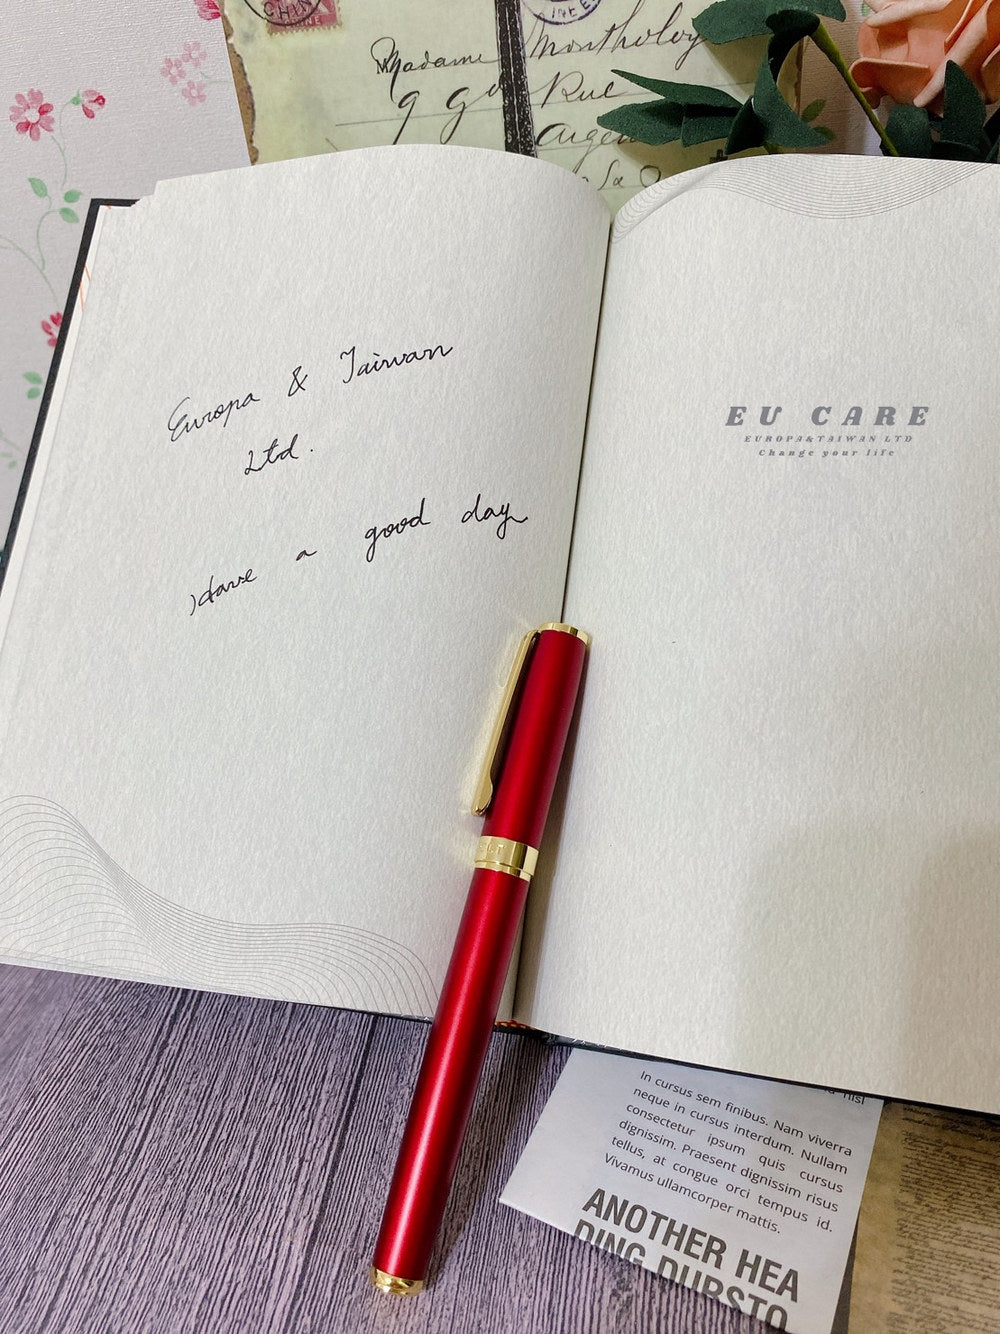 CHIN
INE E
Madame Montholoy
9 Rue
Europa & Taiwan
Ltd.
Have a good day
EU CARE
EUROPA&TAIWAN LTD
Change your life
nisl
In cursus sem finibus. Nam viverra
neque in cursus interdum. Nullam
consectetur ipsum quis cursus
dignissim. Praesent dignissim risus
tellus, at congue orci tempus id.
Vivamus ullamcorper mattis.
ANOTHER HEA
DING DUBSTO